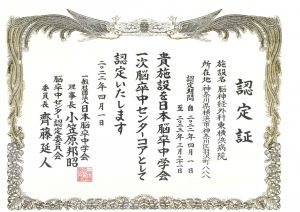 認定証
施設名 脳神経外科東横浜病院
所在地 神奈川県横浜市神奈川区羽沢町八八八
認定期間 自 二〇二二年 四月 一日
至
貴施設を日本脳卒中学会
一次脳卒中センターコアとして
認定いたします
二〇二二年 四月 一日
一般社団法人日本脳卒中学会
理事長 小笠原邦昭
脳卒中センター認定委員会
委員長 齊藤延人